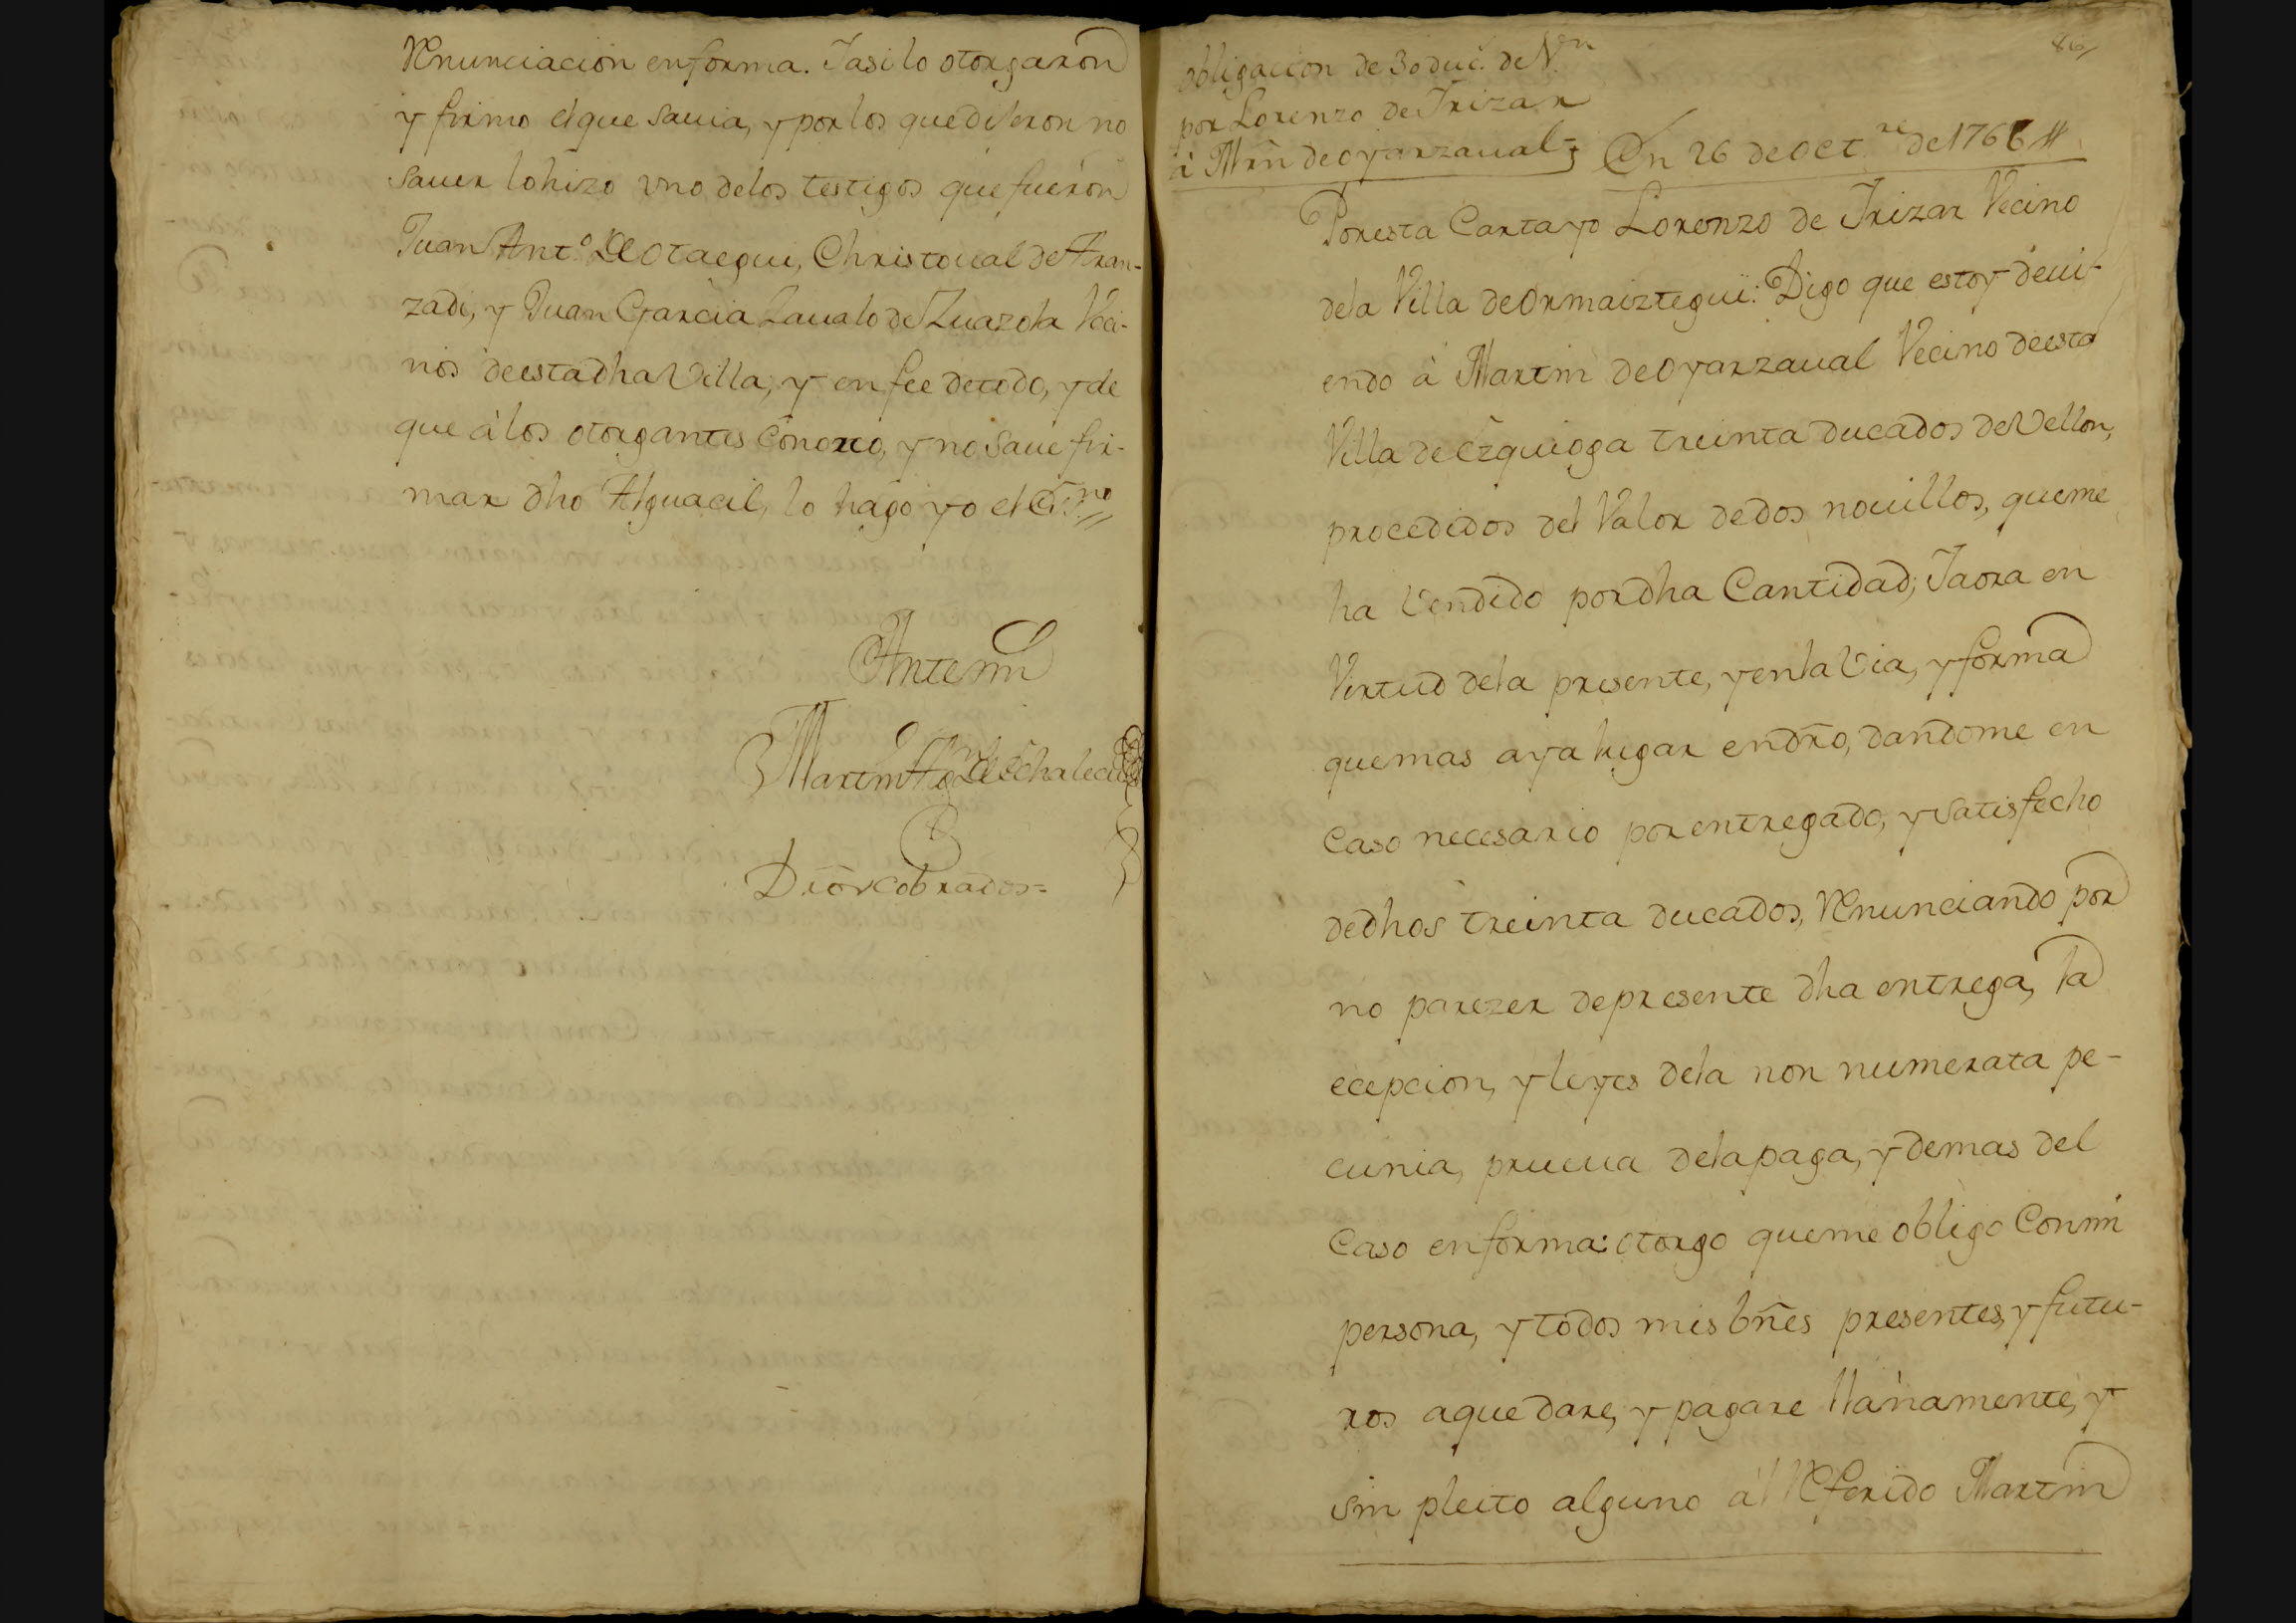 Renunciacion en forma. Iasi lo otorgaron
y firmo el que sauia, y por los que dijeron no
sauer lo hizo vno de los testigos que fueron
Juan Antº de Otaegui, Christoual de Aran-
zadi, y Juan Garcia Laualo de Zuazola Veci-
nos de esta dha Villa, y en fee de todo, y de
que â los otorgantes conozco, y no saue fir-
mar dho Alguacil, lo hago yo el Essno
Ante mi
Martin
Drõs cobrados=
obligacion de 30 duc.s de Vn
por Lorenzo de Irizar
â Mrñ de oyarzaual=
En 26 de Oct.re de 1766
Por esta Carta yo Lorenzo de Irizar Vecino
de la Villa de Ormaiztegui: Digo que estoy deui-
endo â Martin de Oyarzaual Vecino de esta
Villa de Ezquioga treinta ducados de Vellon,
procedidos del Valor de dos nouillos, que me
ha Vendido por dha Cantidad; Iaora en
Virtud de la presente, y en la Via, y forma
que mas aya lugar en drõ, dandome en
Caso necesario por entregado, y satisfecho
de dhos treinta ducados, Renunciando por
no parezer de presente dha entrega, la
ecepcion, y leyes de la non numerata pe-
cunia, prueua de la paga, y demas del
Caso en forma: otorgo que me obligo Con mi
persona, y todos mis bñes presentes, y futu-
ros a que dare, y pagare llanamente, y
sin pleito alguno âl Referido Martin